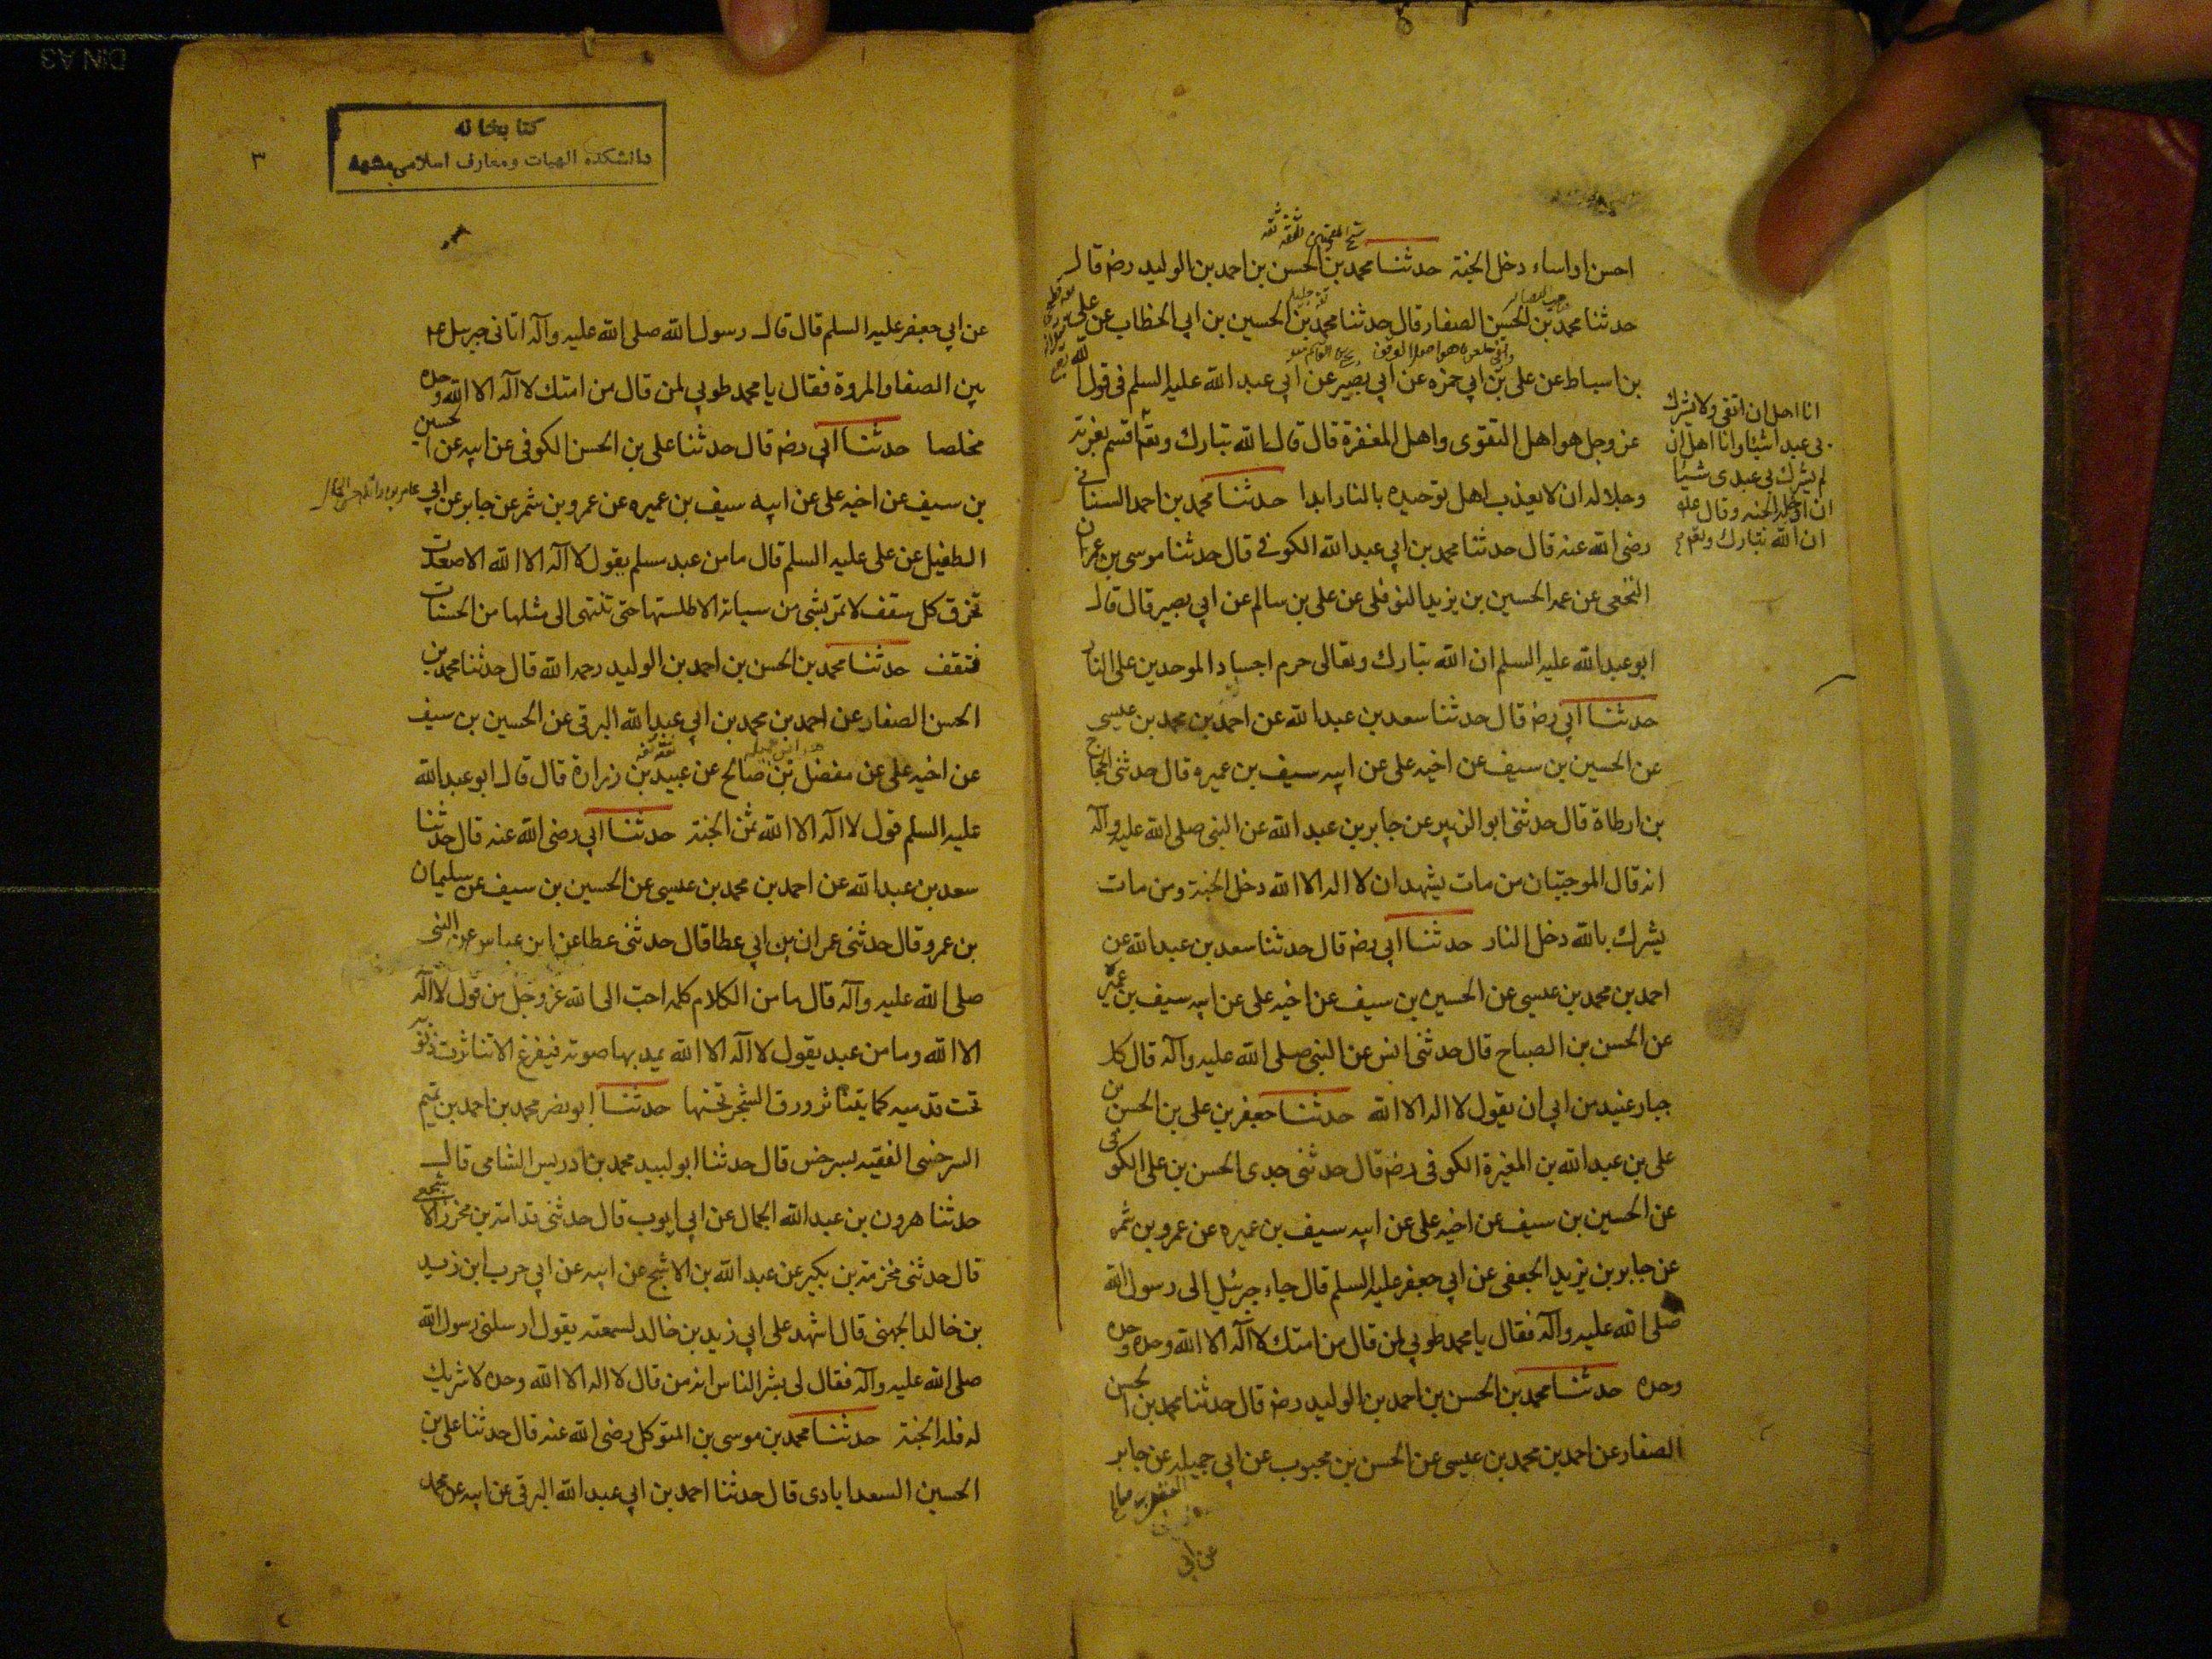 احسن او اساء دخل الجنة حدثنا محمد بن الحسن بن احمد بن الوليد رضه قال
حدثنا محمد بن الحسن الصفار قال حدثنا محمد بن الحسين بن ابي الخطاب عن علي
بن اسباط عن علي بن ابي حمزه عن ابي بصير عن ابي عبد الله عليه السلم في قول الله
عز وجل هو اهل التقوى واهل المغفرة قال قال الله تبارك وتعم اقسم بعزته
وجلاله ان لا يعذب اهل توحيده بالنار ابدا حدثنا محمد بن احمد السناني
رضي الله عنه قال حدثنا محمد بن ابي عبد الله الكوفي قال حدثنا موسى بن عمران
النخعي عن عمه الحسين بن يزيد النوفلي عن علي بن سالم عن ابي بصير قال قال
ابو عبد الله عليه السلم ان الله تبارك وتعالى حرم اجساد الموحدين على النار
حدثنا ابي رضه قال حدثنا سعد بن عبد الله عن احمد بن محمد بن عيسى
عن الحسين بن سيف عن اخيه علي عن ابيه سيف بن عميره قال حدثني الحجاج
بن ارطاة قال حدثني ابو الزبير عن جابر بن عبد الله عن النبي صلى الله عليه وآله
انه قال الموجبتان من مات يشهد ان لا اله الا الله دخل الجنة ومن مات
يشرك بالله دخل النار حدثنا ابي رضه قال حدثنا سعد بن عبد الله عن
احمد بن محمد بن عيسى عن الحسين بن سيف عن اخيه علي عن ابيه سيف بن عميره
عن الحسن بن الصباح قال حدثني انس عن النبي صلى الله عليه وآله قال كل
جبار عنيد من ابي ان يقول لا اله الا الله حدثنا جعفر بن علي بن الحسن بن
علي بن عبد الله بن المغيرة الكوفي رضه قال حدثني جدي الحسن بن علي الكوفي
عن الحسين بن سيف عن اخيه علي عن ابيه سيف بن عميره عن عمرو بن شمر
عن جابر بن يزيد الجعفي عن ابي جعفر عليه السلم قال جاء جبرئيل الى رسول الله
صلى الله عليه وآله فقال يا محمد طوبي لمن قال من امتك لا آله الا الله وحده وحده
وحده حدثنا محمد بن الحسن بن احمد بن الوليد رضه قال حدثنا محمد بن الحسن
الصفار عن احمد بن محمد بن عيسى عن الحسن بن محبوب عن ابي جميله عن جابر
عن ابي
انا اهل ان اتقى ولا يشرك
بي عبدا شيئا وانا اهل ان
لم يشرك بي عبدي شيئا
ان ادخله الجنه وقال علم
ان الله تبارك وتعم
٣
كتابخانه
دانشكده الهيات ومعارف اسلامي مشهد
عن ابي جعفر عليه السلم قال قال رسول الله صلى الله عليه وآله اتاني جبرئيل
بين الصفا والمروة فقال يا محمد طوبي لمن قال من امتك لا آله الا الله وحده
مخلصا حدثنا ابي رضه قال حدثنا علي بن الحسن الكوفي عن ابيه عن الحسين
بن سيف عن اخيه علي عن ابيه سيف بن عميره عن عمرو بن شمر عن جابر عن ابي
الطفيل عن علي عليه السلم قال ما من عبد مسلم يقول لا آله الا الله الا صعدت
تخرق كل سقف لا تمر بشي من سيئاته الا طلستها حتى تنتهى الى مثلها من الحسنات
فتقف حدثنا محمد بن الحسن بن احمد بن الوليد رحمه الله قال حدثنا محمد بن
الحسن الصفار عن احمد بن محمد بن ابي عبد الله البرقي عن الحسين بن سيف
عن اخيه علي عن مفضل بن صالح عن عبيد بن زرارة قال قال ابو عبد الله
عليه السلم قول لا اله الا الله ثمن الجنة حدثنا ابي رضي الله عنه قال حدثنا
سعد بن عبد الله عن احمد بن محمد بن عيسى عن الحسين بن سيف عن سليمان
بن عمرو قال حدثني عمران بن ابي عطا قال حدثني عطا عن ابن عباس عن النبي
صلى الله عليه وآله قال ما من الكلام كلمه احب الى الله عز وجل من قول لا آله
الا الله وما من عبد يقول لا آله الا الله يمد بها صوته فيفرغ الا تناثرت ذنوبه
تحت قدميه كما يتناثر ورق الشجر تحتها حدثنا ابو نصر محمد بن احمد بن تميم
السرخسي الفقيه بسرخس قال حدثنا ابو لبيد محمد بن ادريس الشامي قال
حدثنا هرون بن عبد الله الجمال عن ابي ايوب قال حدثني قدامة بن محرز الاشجعي
قال حدثني مخزمة بن بكير عن عبد الله بن الاشج عن ابيه عن ابي حرب ابن زيد
بن خالد الجهني قال اشهد علي ابي زيد بن خالد لسمعته يقول ارسلني رسول الله
صلى الله عليه وآله فقال لي بشر الناس انه من قال لا اله الا الله وحده لا شريك
له فله الجنة حدثنا محمد بن موسى بن المتوكل رضي الله عنه قال حدثنا علي بن
الحسين السعدابادي قال حدثنا احمد بن ابي عبد الله البرقي عن ابيه عن محمد